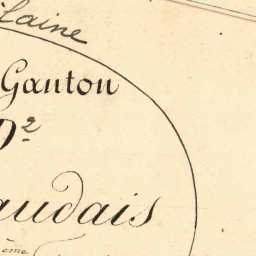 laine
Canton
D²
audais
ème